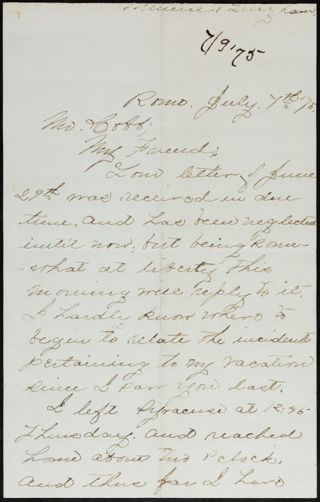 7/9'75
Rome. July. 7th '75
Mr. Cobb;
My Friend;
Your letter of June
29th was received in due
time. and has been neglected
until now. but being some-
-what at liberty this
morning will reply to it.
I hardly know where to
begin to relate the incidents
pertaining to my vacation
since I saw you last.
I left Syracuse at 12.35
Thursday. and reached
home about two o'clock.
and thus far I have